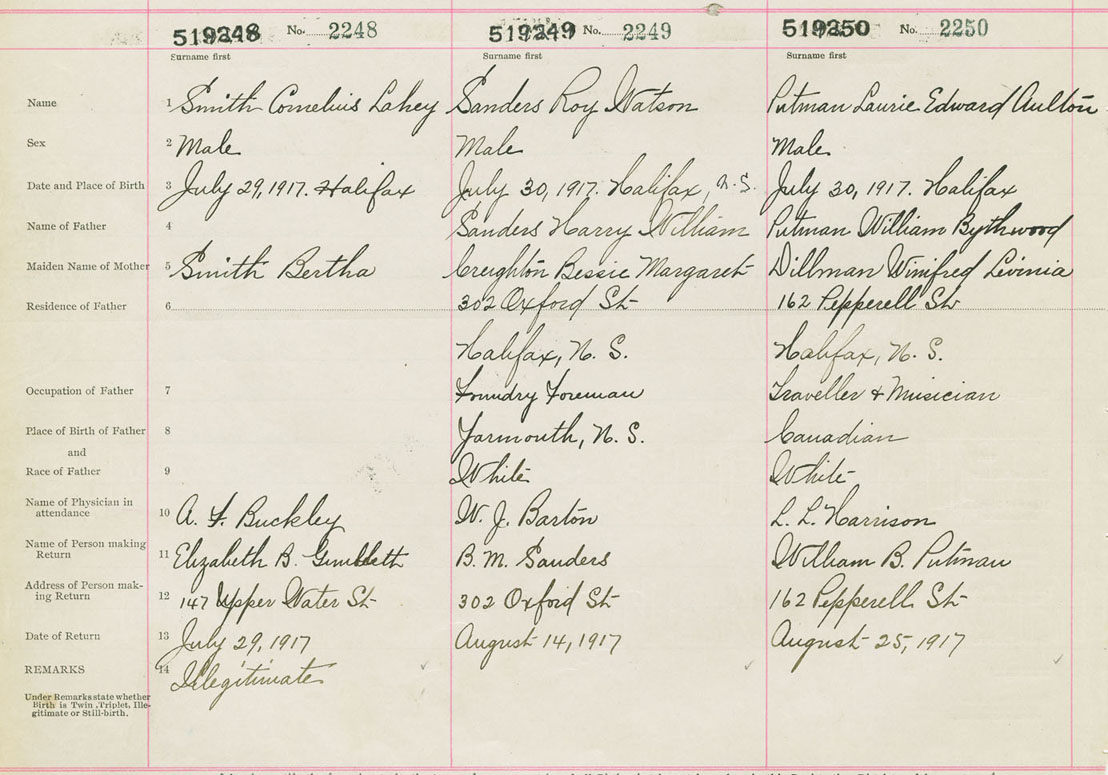 519248 No. 2248 519249 No. 2249 519250 No. 2250
Surname first Surname first Surname first
Name 1 Smith Cornelius Lahey Sanders Roy Watson Putman Laurie Edward Aulton
Sex 2 Male Male Male
Date and Place of Birth 3 July 29, 1917. Halifax July 30, 1917. Halifax, N.S. July 30, 1917. Halifax
Name of Father 4 Sanders Harry William Putman William Bythwood
Maiden Name of Mother 5 Smith Bertha Creighton Bessie Margaret Dillman Winifred Levinia
Residence of Father 6 302 Oxford St 162 Pepperell St
Halifax, N. S. Halifax, N. S.
Occupation of Father 7 Foundry Foreman Traveller & Musician
Place of Birth of Father 8 Yarmouth, N. S. Canadian
and
Race of Father 9 White White
Name of Physician in
attendance 10 A. F. Buckley W. J. Barton L. L. Harrison
Name of Person making
Return 11 Elizabeth B. B. M. Sanders William B. Putman
Address of Person mak-
ing Return 12 147 Upper Water St 302 Oxford St 162 Pepperell St
Date of Return 13 July 29, 1917 August 14, 1917 August 25, 1917
REMARKS 14 Illegitimate
Under Remarks state whether
Birth is Twin, Triplet, Ille-
gitimate or Still-birth.